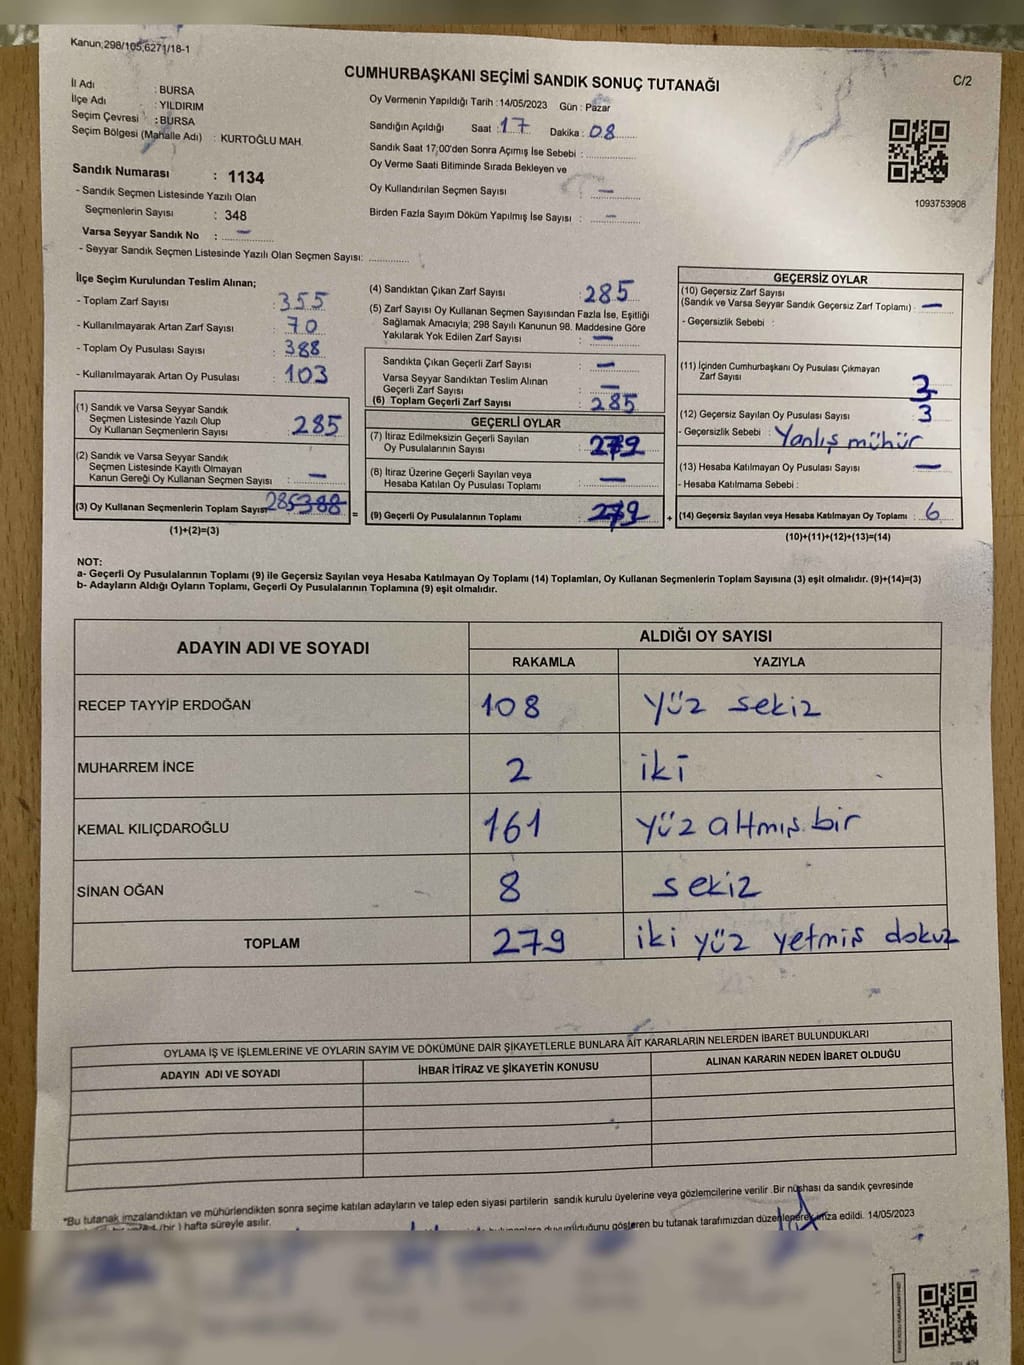 Kanun,298/105,6271/18-1
CUMHURBAŞKANI SEÇİMİ SANDIK SONUÇ TUTANAĞI
C/2
İl Adı : BURSA
İlçe Adı : YILDIRIM
Seçim Çevresi : BURSA
Seçim Bölgesi (Mahalle Adı) : KURTOĞLU MAH.
Sandık Numarası : 1134
- Sandık Seçmen Listesinde Yazılı Olan
Seçmenlerin Sayısı : 348
Varsa Seyyar Sandık No : —
- Seyyar Sandık Seçmen Listesinde Yazılı Olan Seçmen Sayısı:
Oy Vermenin Yapıldığı Tarih : 14/05/2023 Gün : Pazar
Sandığın Açıldığı Saat : 17 Dakika : 08
Sandık Saat 17:00'den Sonra Açımış İse Sebebi :
Oy Verme Saati Bitiminde Sırada Bekleyen ve
Oy Kullandırılan Seçmen Sayısı —
Birden Fazla Sayım Döküm Yapılmış İse Sayısı : —
1093753908
İlçe Seçim Kurulundan Teslim Alınan;
- Toplam Zarf Sayısı : 355
- Kullanılmayarak Artan Zarf Sayısı : 70
- Toplam Oy Pusulası Sayısı : 388
- Kullanılmayarak Artan Oy Pusulası : 103
(1) Sandık ve Varsa Seyyar Sandık
Seçmen Listesinde Yazılı Olup
Oy Kullanan Seçmenlerin Sayısı : 285
(2) Sandık ve Varsa Seyyar Sandık
Seçmen Listesinde Kayıtlı Olmayan
Kanun Gereği Oy Kullanan Seçmen Sayısı : —
(3) Oy Kullanan Seçmenlerin Toplam Sayısı 285 388
(1)+(2)=(3)
(4) Sandıktan Çıkan Zarf Sayısı : 285
(5) Zarf Sayısı Oy Kullanan Seçmen Sayısından Fazla İse, Eşitliği
Sağlamak Amacıyla; 298 Sayılı Kanunun 98. Maddesine Göre
Yakılarak Yok Edilen Zarf Sayısı : —
Sandıkta Çıkan Geçerli Zarf Sayısı : —
Varsa Seyyar Sandıktan Teslim Alınan
Geçerli Zarf Sayısı : —
(6) Toplam Geçerli Zarf Sayısı : 285
GEÇERLİ OYLAR
(7) İtiraz Edilmeksizin Geçerli Sayılan
Oy Pusulalarının Sayısı : 279
(8) İtiraz Üzerine Geçerli Sayılan veya
Hesaba Katılan Oy Pusulası Toplamı : —
= (9) Geçerli Oy Pusulalarının Toplamı : 279 +
GEÇERSİZ OYLAR
(10) Geçersiz Zarf Sayısı
(Sandık ve Varsa Seyyar Sandık Geçersiz Zarf Toplamı) : —
- Geçersizlik Sebebi :
(11) İçinden Cumhurbaşkanı Oy Pusulası Çıkmayan
Zarf Sayısı 3
(12) Geçersiz Sayılan Oy Pusulası Sayısı 3
- Geçersizlik Sebebi : Yanlış mühür
(13) Hesaba Katılmayan Oy Pusulası Sayısı : —
- Hesaba Katılmama Sebebi :
(14) Geçersiz Sayılan veya Hesaba Katılmayan Oy Toplamı : 6
(10)+(11)+(12)+(13)=(14)
NOT:
a- Geçerli Oy Pusulalarının Toplamı (9) ile Geçersiz Sayılan veya Hesaba Katılmayan Oy Toplamı (14) Toplamları, Oy Kullanan Seçmenlerin Toplam Sayısına (3) eşit olmalıdır. (9)+(14)=(3)
b- Adayların Aldığı Oyların Toplamı, Geçerli Oy Pusulalarının Toplamına (9) eşit olmalıdır.
ADAYIN ADI VE SOYADI ALDIĞI OY SAYISI
RAKAMLA YAZIYLA
RECEP TAYYİP ERDOĞAN 108 yüz sekiz
MUHARREM İNCE 2 iki
KEMAL KILIÇDAROĞLU 161 yüz altmış bir
SİNAN OĞAN 8 sekiz
TOPLAM 279 iki yüz yetmiş dokuz
OYLAMA İŞ VE İŞLEMLERİNE VE OYLARIN SAYIM VE DÖKÜMÜNE DAİR ŞİKAYETLERLE BUNLARA AİT KARARLARIN NELERDEN İBARET BULUNDUKLARI
ADAYIN ADI VE SOYADI İHBAR İTİRAZ VE ŞİKAYETİN KONUSU ALINAN KARARIN NEDEN İBARET OLDUĞU
*Bu tutanak imzalandıktan ve mühürlendikten sonra seçime katılan adayların ve talep eden siyasi partilerin sandık kurulu üyelerine veya gözlemcilerine verilir .Bir nüshası da sandık çevresinde
(bir ) hafta süreyle asılır. duyurulduğunu gösteren bu tutanak tarafımızdan düzenlenerek imza edildi. 14/05/2023